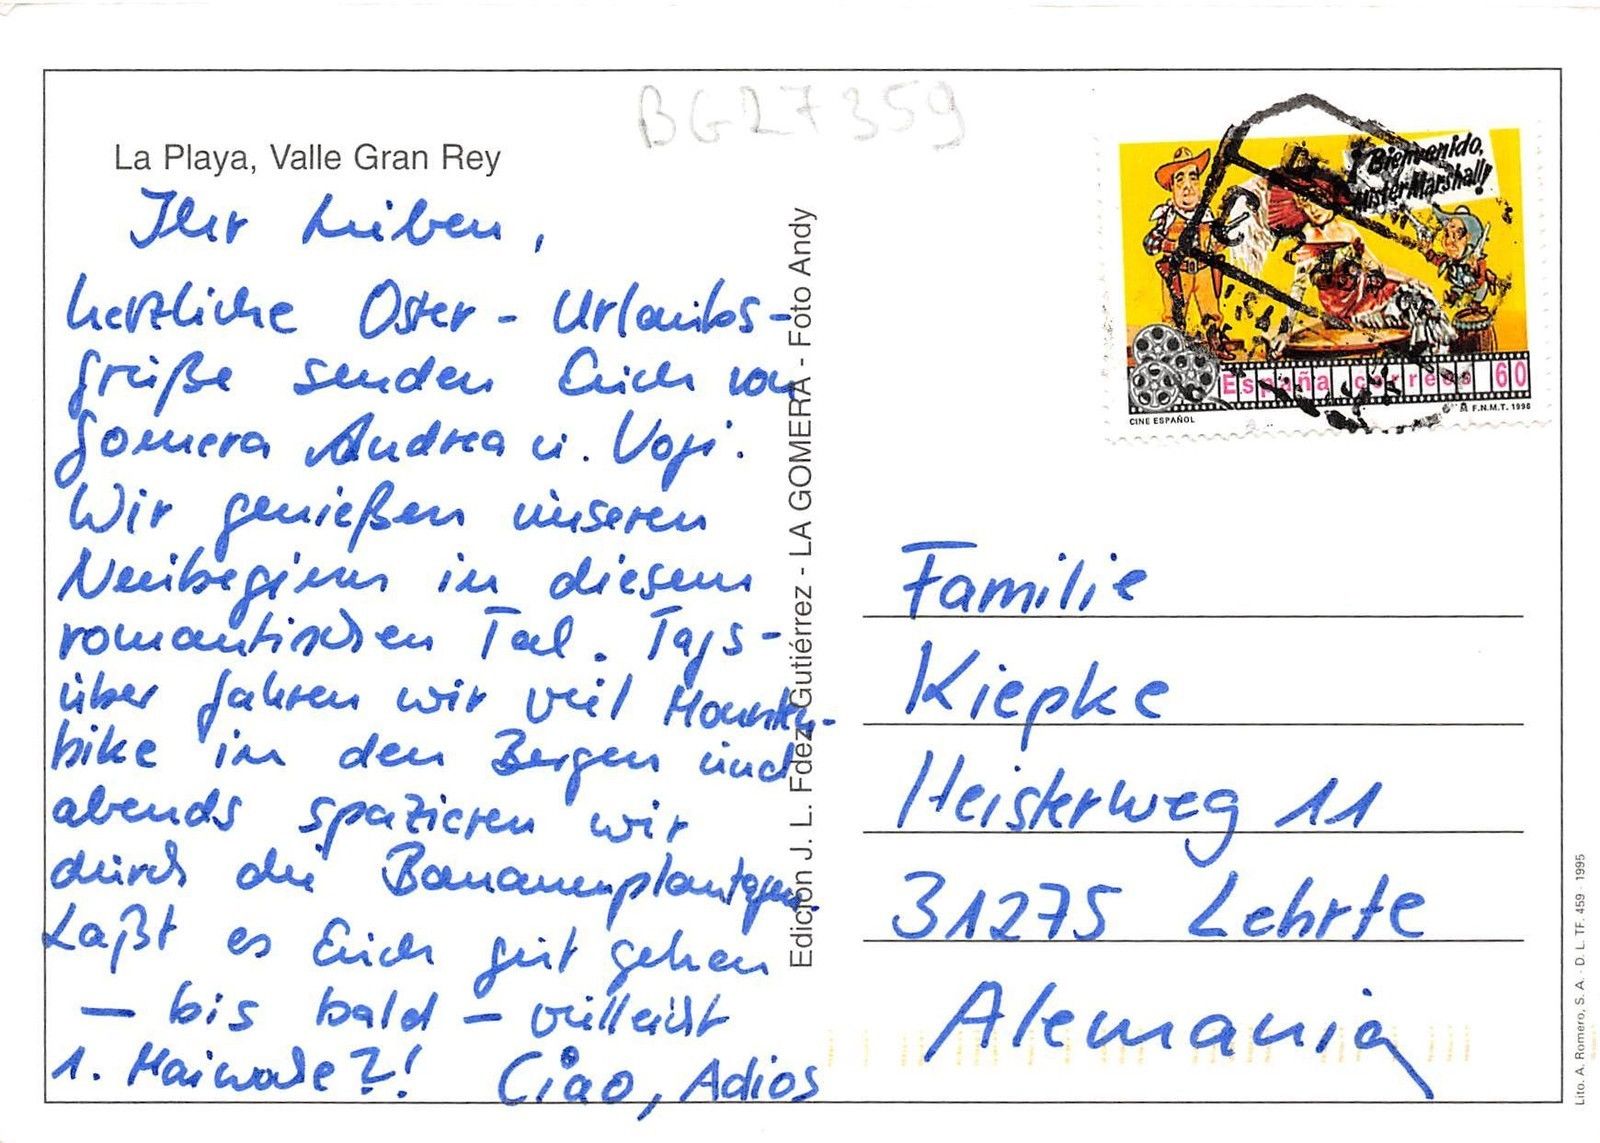 BG27359
La Playa, Valle Gran Rey
Ihr Lieben,
herzliche Oster-Urlaubs-
grüße senden Euch von
Gomera Andrea u. Vogi.
Wir genießen unseren
Neubeginn in diesem
romantischen Tal. Tags-
über fahren wir viel Mountain-
bike in den Bergen und
abends spazieren wir
durch die Bananenplantagen.
Laßt es Euch gut gehen
— bis bald — vielleicht
1. Maiwoche?! Ciao, Adios
Edicion J. L. Fdez. Gutiérrez - LA GOMERA - Foto Andy
¡Bienvenido,
Mister Marshall!
España correos 60
CINE ESPAÑOL
F.N.M.T. 1996
Familie
Kiepke
Heisterweg 11
31275 Lehrte
Alemania
Lito. A. Romero, S. A. - D. L. TF. 459 - 1995